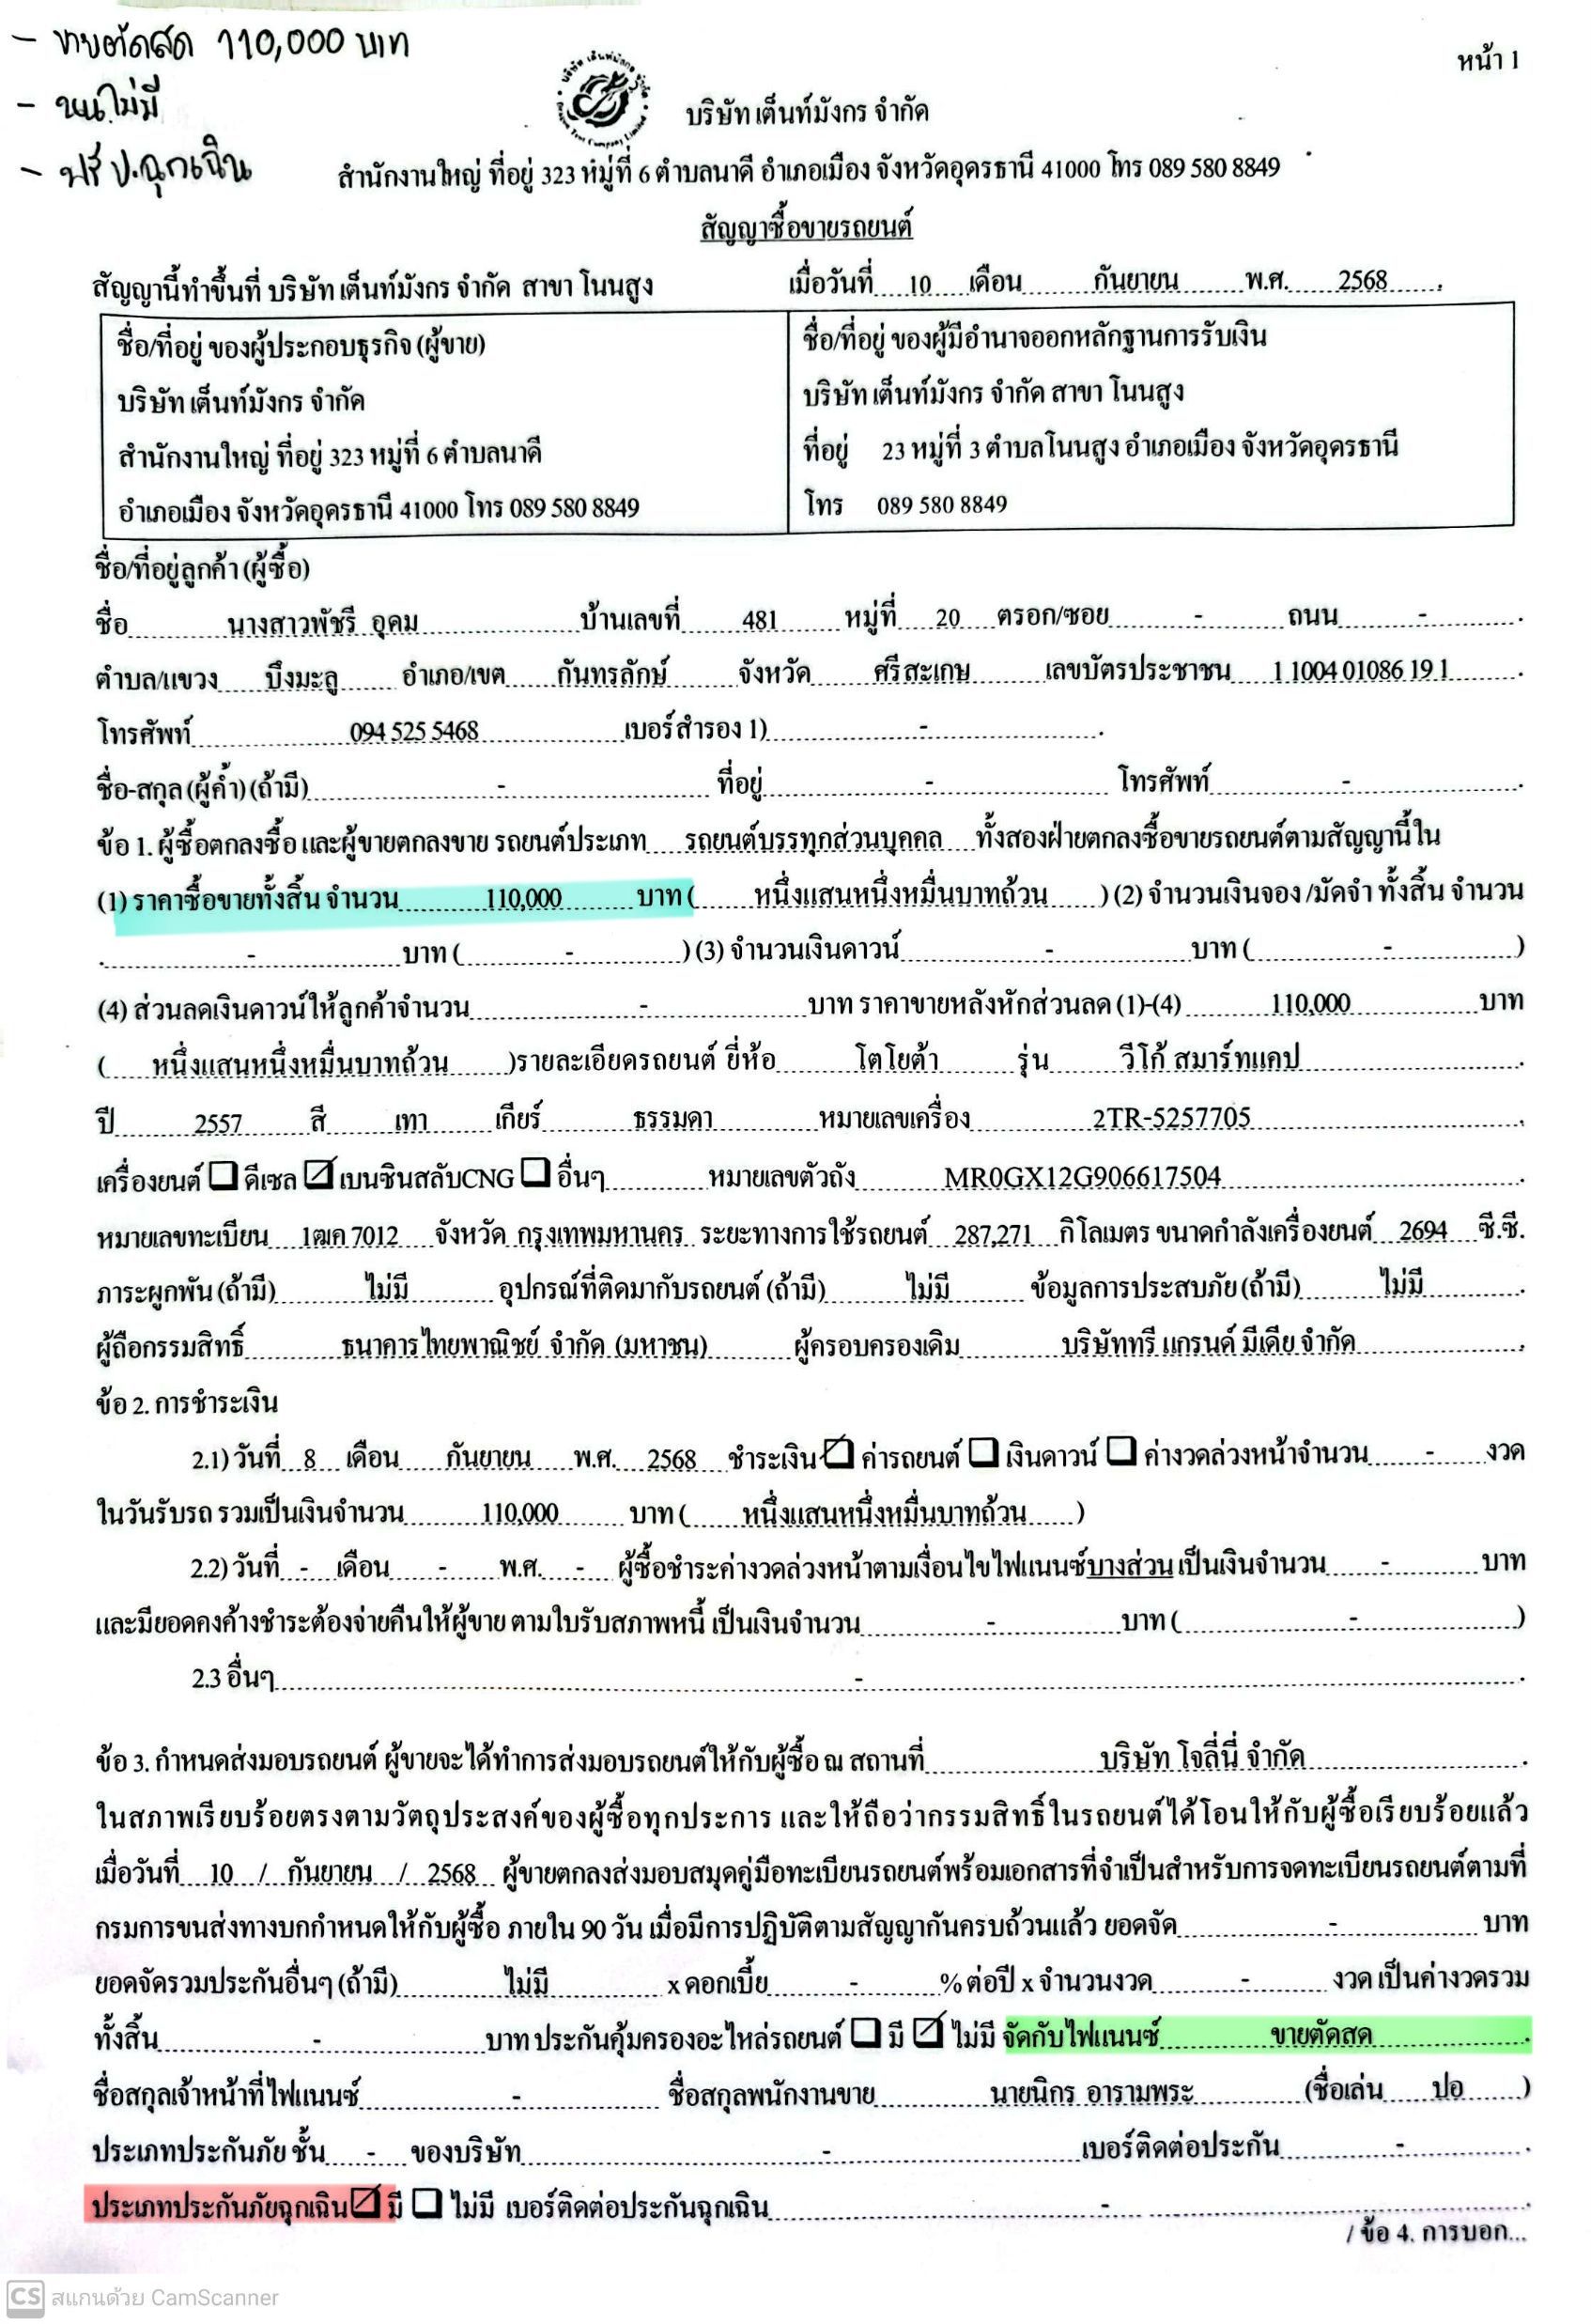 - ขายตัดสด 110,000 บาท
- ขน.ไม่มี
- ฟรี ป.ฉุกเฉิน
หน้า 1
บริษัท เต็นท์มังกร จำกัด
สำนักงานใหญ่ ที่อยู่ 323 หมู่ที่ 6 ตำบลนาดี อำเภอเมือง จังหวัดอุดรธานี 41000 โทร 089 580 8849
สัญญาซื้อขายรถยนต์
สัญญานี้ทำขึ้นที่ บริษัท เต็นท์มังกร จำกัด สาขา โนนสูง เมื่อวันที่ 10 เดือน กันยายน พ.ศ. 2568
ชื่อ/ที่อยู่ ของผู้ประกอบธุรกิจ (ผู้ขาย)
บริษัท เต็นท์มังกร จำกัด
สำนักงานใหญ่ ที่อยู่ 323 หมู่ที่ 6 ตำบลนาดี
อำเภอเมือง จังหวัดอุดรธานี 41000 โทร 089 580 8849
ชื่อ/ที่อยู่ ของผู้มีอำนาจออกหลักฐานการรับเงิน
บริษัท เต็นท์มังกร จำกัด สาขา โนนสูง
ที่อยู่ 23 หมู่ที่ 3 ตำบลโนนสูง อำเภอเมือง จังหวัดอุดรธานี
โทร 089 580 8849
ชื่อ/ที่อยู่ลูกค้า (ผู้ซื้อ)
ชื่อ นางสาวพัชรี อุดม บ้านเลขที่ 481 หมู่ที่ 20 ตรอก/ซอย - ถนน -
ตำบล/แขวง บึงมะลู อำเภอ/เขต กันทรลักษ์ จังหวัด ศรีสะเกษ เลขบัตรประชาชน 1 1004 01086 19 1
โทรศัพท์ 094 525 5468 เบอร์สำรอง 1) -
ชื่อ-สกุล (ผู้ค้ำ) (ถ้ามี) - ที่อยู่ - โทรศัพท์ -
ข้อ 1. ผู้ซื้อตกลงซื้อ และผู้ขายตกลงขาย รถยนต์ประเภท รถยนต์บรรทุกส่วนบุคคล ทั้งสองฝ่ายตกลงซื้อขายรถยนต์ตามสัญญานี้ใน
(1) ราคาซื้อขายทั้งสิ้น จำนวน 110,000 บาท ( หนึ่งแสนหนึ่งหมื่นบาทถ้วน ) (2) จำนวนเงินจอง /มัดจำ ทั้งสิ้น จำนวน
- บาท ( - ) (3) จำนวนเงินดาวน์ - บาท ( - )
(4) ส่วนลดเงินดาวน์ให้ลูกค้าจำนวน - บาท ราคาขายหลังหักส่วนลด (1)-(4) 110,000 บาท
( หนึ่งแสนหนึ่งหมื่นบาทถ้วน )รายละเอียดรถยนต์ ยี่ห้อ โตโยต้า รุ่น วีโก้ สมาร์ทแคป
ปี 2557 สี เทา เกียร์ ธรรมดา หมายเลขเครื่อง 2TR-5257705
เครื่องยนต์ ☐ ดีเซล ☑ เบนซินสลับCNG ☐ อื่นๆ หมายเลขตัวถัง MR0GX12G906617504
หมายเลขทะเบียน 1ฒค 7012 จังหวัด กรุงเทพมหานคร ระยะทางการใช้รถยนต์ 287,271 กิโลเมตร ขนาดกำลังเครื่องยนต์ 2694 ซี.ซี.
ภาระผูกพัน (ถ้ามี) ไม่มี อุปกรณ์ที่ติดมากับรถยนต์ (ถ้ามี) ไม่มี ข้อมูลการประสบภัย (ถ้ามี) ไม่มี
ผู้ถือกรรมสิทธิ์ ธนาคารไทยพาณิชย์ จำกัด (มหาชน) ผู้ครอบครองเดิม บริษัททรี แกรนด์ มีเดีย จำกัด
ข้อ 2. การชำระเงิน
2.1) วันที่ 8 เดือน กันยายน พ.ศ. 2568 ชำระเงิน ☑ ค่ารถยนต์ ☐ เงินดาวน์ ☐ ค่างวดล่วงหน้าจำนวน - งวด
ในวันรับรถ รวมเป็นเงินจำนวน 110,000 บาท ( หนึ่งแสนหนึ่งหมื่นบาทถ้วน )
2.2) วันที่ - เดือน - พ.ศ. - ผู้ซื้อชำระค่างวดล่วงหน้าตามเงื่อนไขไฟแนนซ์บางส่วน เป็นเงินจำนวน - บาท
และมียอดคงค้างชำระต้องจ่ายคืนให้ผู้ขาย ตามใบรับสภาพหนี้ เป็นเงินจำนวน - บาท ( - )
2.3 อื่นๆ -
ข้อ 3. กำหนดส่งมอบรถยนต์ ผู้ขายจะได้ทำการส่งมอบรถยนต์ให้กับผู้ซื้อ ณ สถานที่ บริษัท โจลี่นี่ จำกัด
ในสภาพเรียบร้อยตรงตามวัตถุประสงค์ของผู้ซื้อทุกประการ และให้ถือว่ากรรมสิทธิ์ในรถยนต์ได้โอนให้กับผู้ซื้อเรียบร้อยแล้ว
เมื่อวันที่ 10 / กันยายน / 2568 ผู้ขายตกลงส่งมอบสมุดคู่มือทะเบียนรถยนต์พร้อมเอกสารที่จำเป็นสำหรับการจดทะเบียนรถยนต์ตามที่
กรมการขนส่งทางบกกำหนดให้กับผู้ซื้อ ภายใน 90 วัน เมื่อมีการปฏิบัติตามสัญญากันครบถ้วนแล้ว ยอดจัด - บาท
ยอดจัดรวมประกันอื่นๆ (ถ้ามี) ไม่มี x ดอกเบี้ย - % ต่อปี x จำนวนงวด - งวด เป็นค่างวดรวม
ทั้งสิ้น - บาท ประกันคุ้มครองอะไหล่รถยนต์ ☐ มี ☑ ไม่มี จัดกับไฟแนนซ์ ขายตัดสด
ชื่อสกุลเจ้าหน้าที่ไฟแนนซ์ - ชื่อสกุลพนักงานขาย นายนิกร อารามพระ (ชื่อเล่น ปอ )
ประเภทประกันภัย ชั้น - ของบริษัท - เบอร์ติดต่อประกัน -
ประเภทประกันภัยฉุกเฉิน ☑ มี ☐ ไม่มี เบอร์ติดต่อประกันฉุกเฉิน -
/ ข้อ 4. การบอก...
CS สแกนด้วย CamScanner